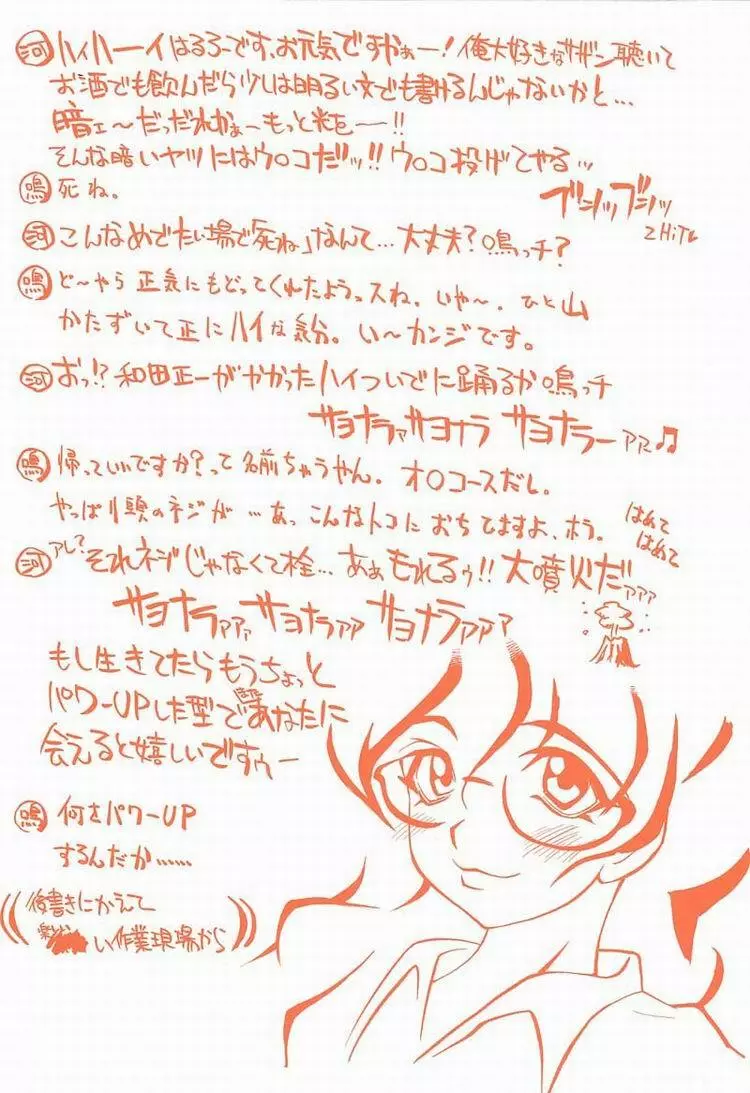 河 ハイハーイはろろーです、お元気ですかぁー!俺大好きなサザン聴いて
お酒でも飲んだら少しは明るい文でも書けるんじゃないかと…
暗ェ〜だっだれかぁーもっと光を──!!
そんな暗いヤツにはウ○コだッ!!ウ○コ投げてやるッ
ブシッブシッ
2HiTレ
鳴 死ね。
河 こんなめでたい場で死ね」なんて…大丈夫?鳴っチ?
鳴 ど〜やら正気にもどってくれたようっスね。いや〜、ひと山
かたずいて正にハイな気分。い〜カンジです。
河 おっ!?和田正一がやかったハイついでに踊るか鳴っチ
サヨナラァサヨナラ サヨナラーァァ♫
鳴 帰っていいですか?って名前ちゃうやん。オ○コースだし。
やっぱり頭のネジが…あっこんなトコにおちてますよ、ホラ。
はめて
はめて
河 アレ?それネジじゃなくて栓…あぁもれるぅ!!大噴火だァァァ
サヨナラァァァサヨナラァァァサヨナラァァァ
もし生きてたらもうちょっと
パワーUPした型であなたに
会えると嬉しいですぅー
鳴 何をパワーUP
するんだか……
後書きにかえて
い作業現場から